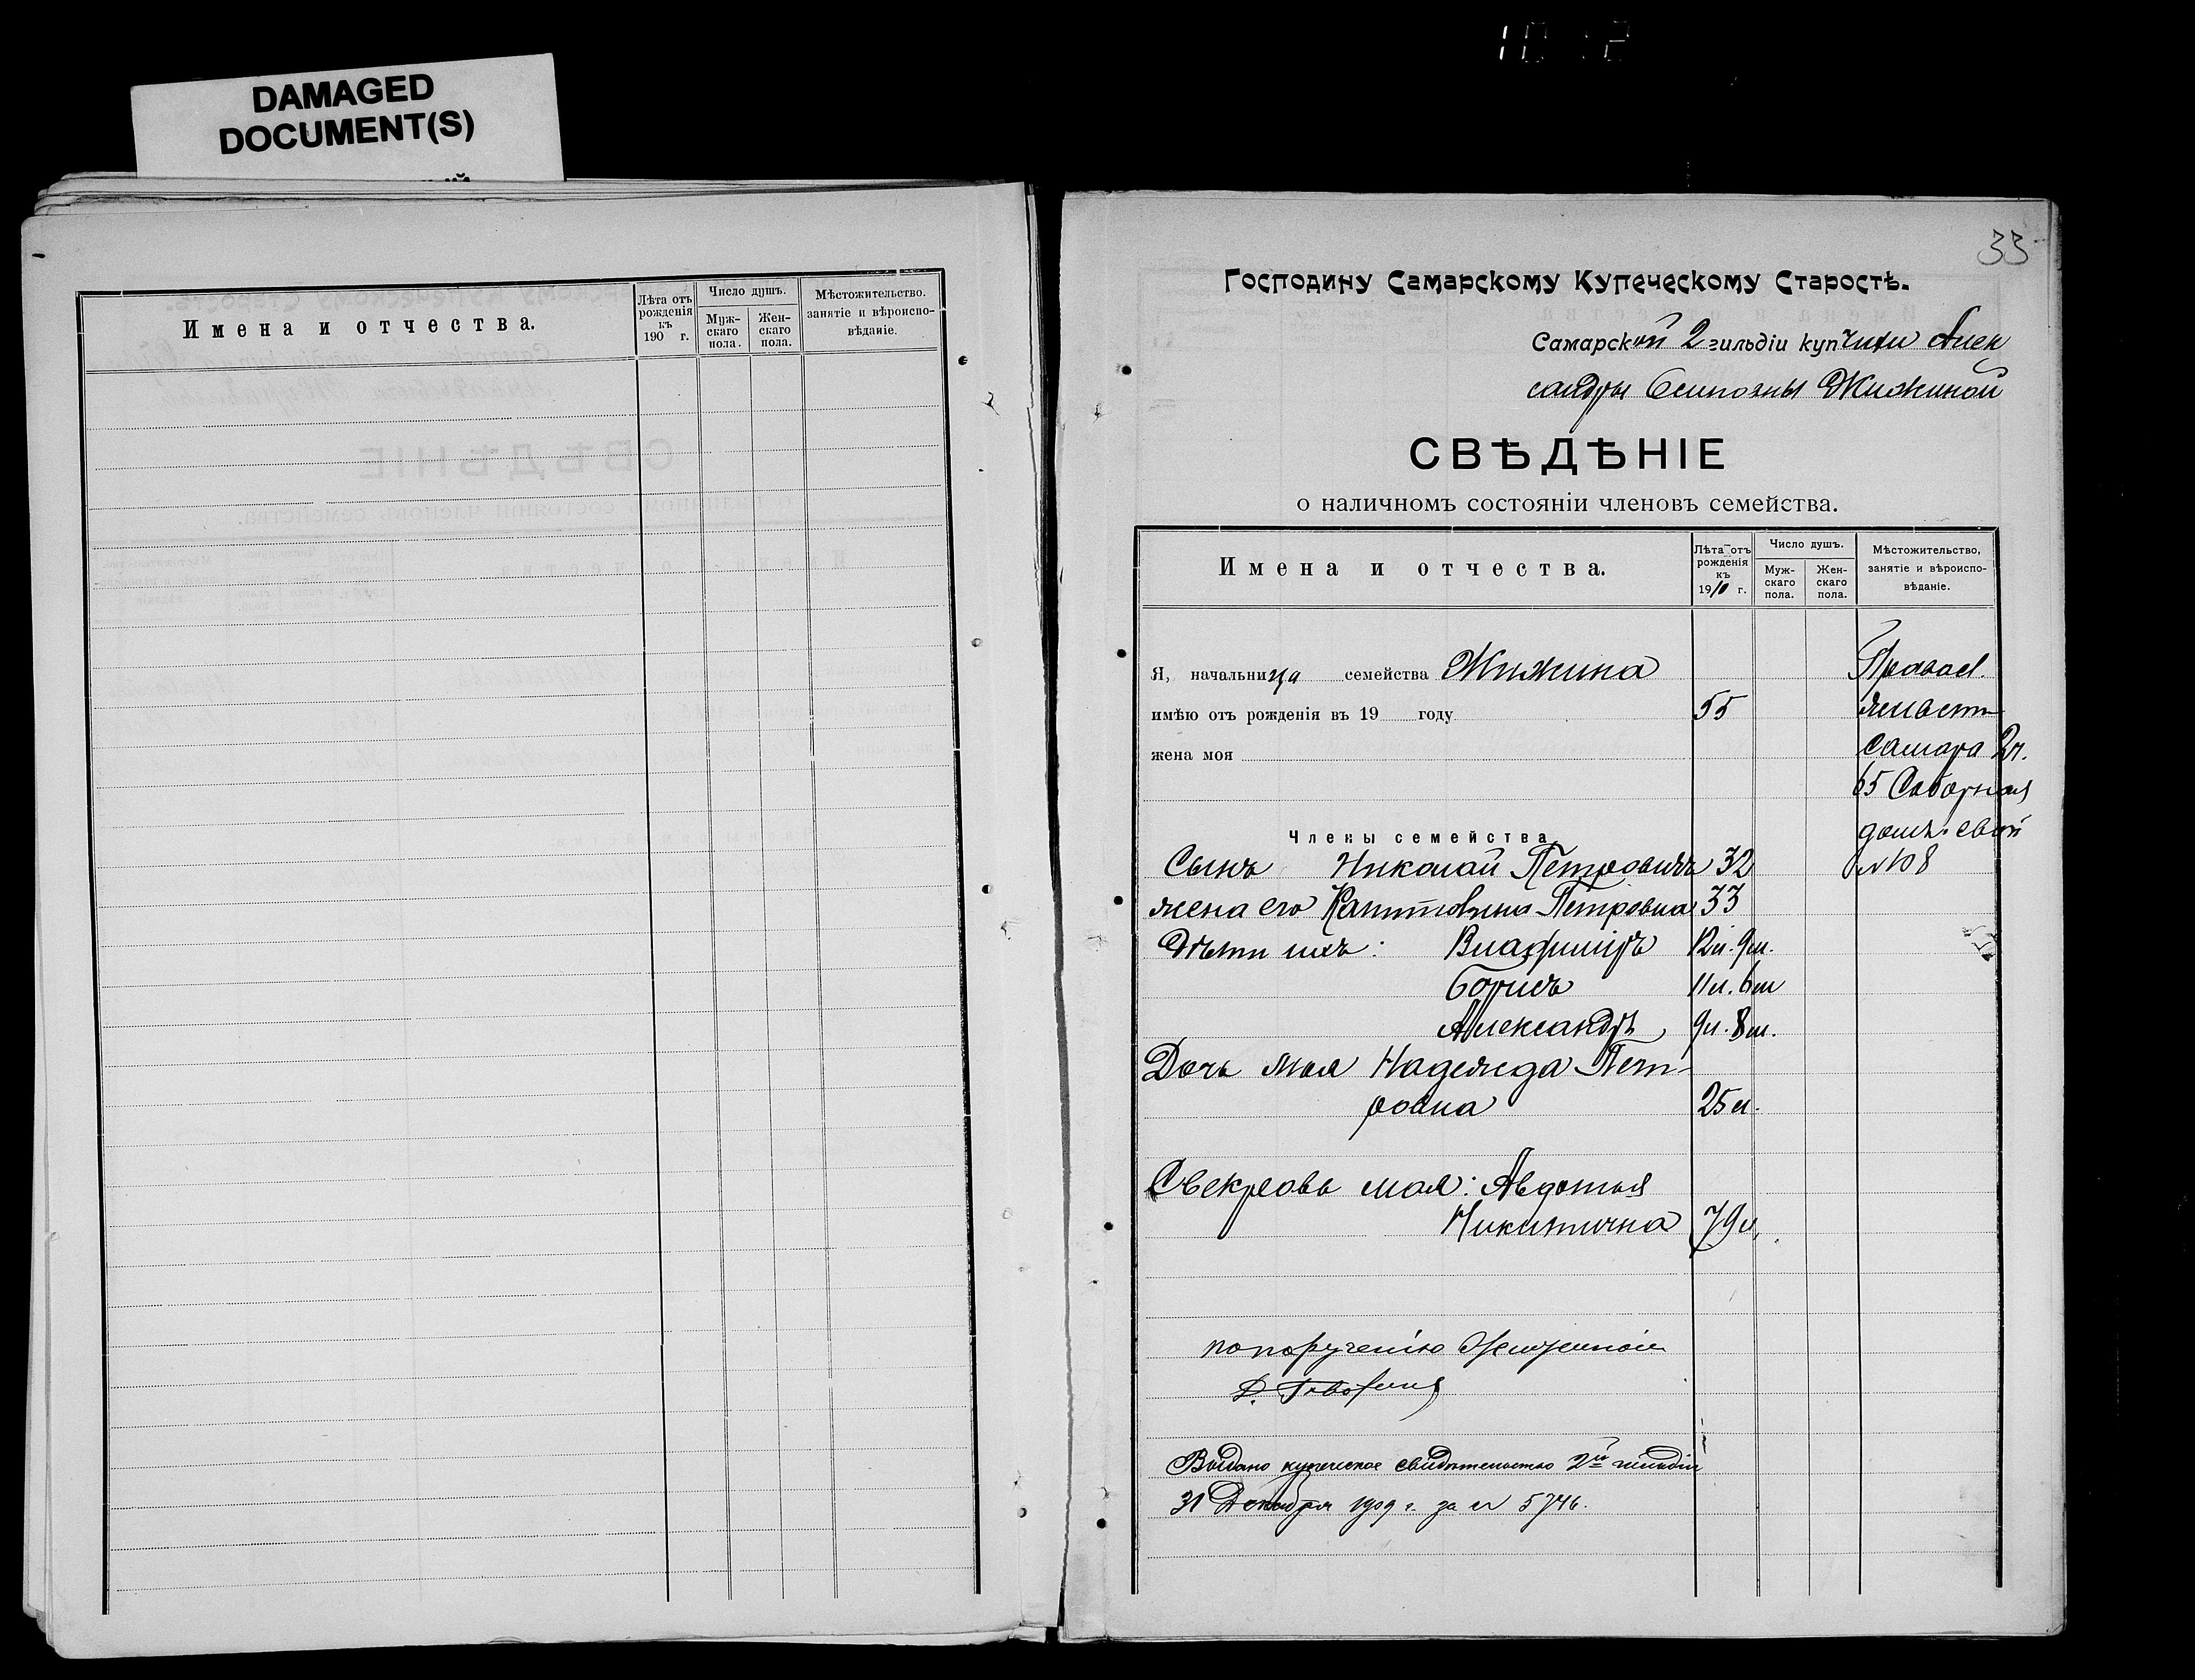 DAMAGED
DOCUMENT(S)
Имена и отчества.
Лѣта отъ рожденія къ 190 г.
Число душъ.
Мужскаго пола.
Женскаго пола.
Мѣстожительство, занятіе и вѣроисповѣданіе.
33
Господину Самарскому Купеческому Старостѣ.
Самарской 2 гильдіи купчихи Алек
сандры Осиповны Жижиной
СВѢДѢНІЕ
о наличномъ состояніи членовъ семейства.
Имена и отчества.
Лѣта отъ рожденія къ 1910 г.
Число душъ.
Мужскаго пола.
Женскаго пола.
Мѣстожительство, занятіе и вѣроисповѣданіе.
Я, начальница семейства Жижина Правосл.
имѣю отъ рожденія въ 19 году 55
жена моя Самара 2ч.
65 Соборная
домъ свой
Члены семейства
Сынъ Николай Петровичъ 32 № 108
жена его Капитолина Петровна 33
Дѣти ихъ: Владиміръ 12л. 9м.
Борисъ 11л. 6м
Александръ 9л. 8м.
Дочь моя Надежда Пет-
ровна 25л.
Свекровь моя: Авдотья
Никитична 79л.
по порученію
Выдано купеческое свидѣтельство 2й гильдіи
31 Декабря 1909 г. за № 5746.